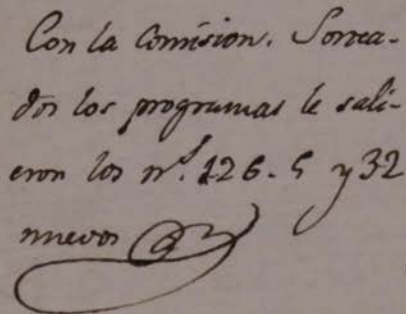 Con la Comision. Sortea-
dos los programas le sali-
eron los n.ˢ 126. 5 y 32
nuevos